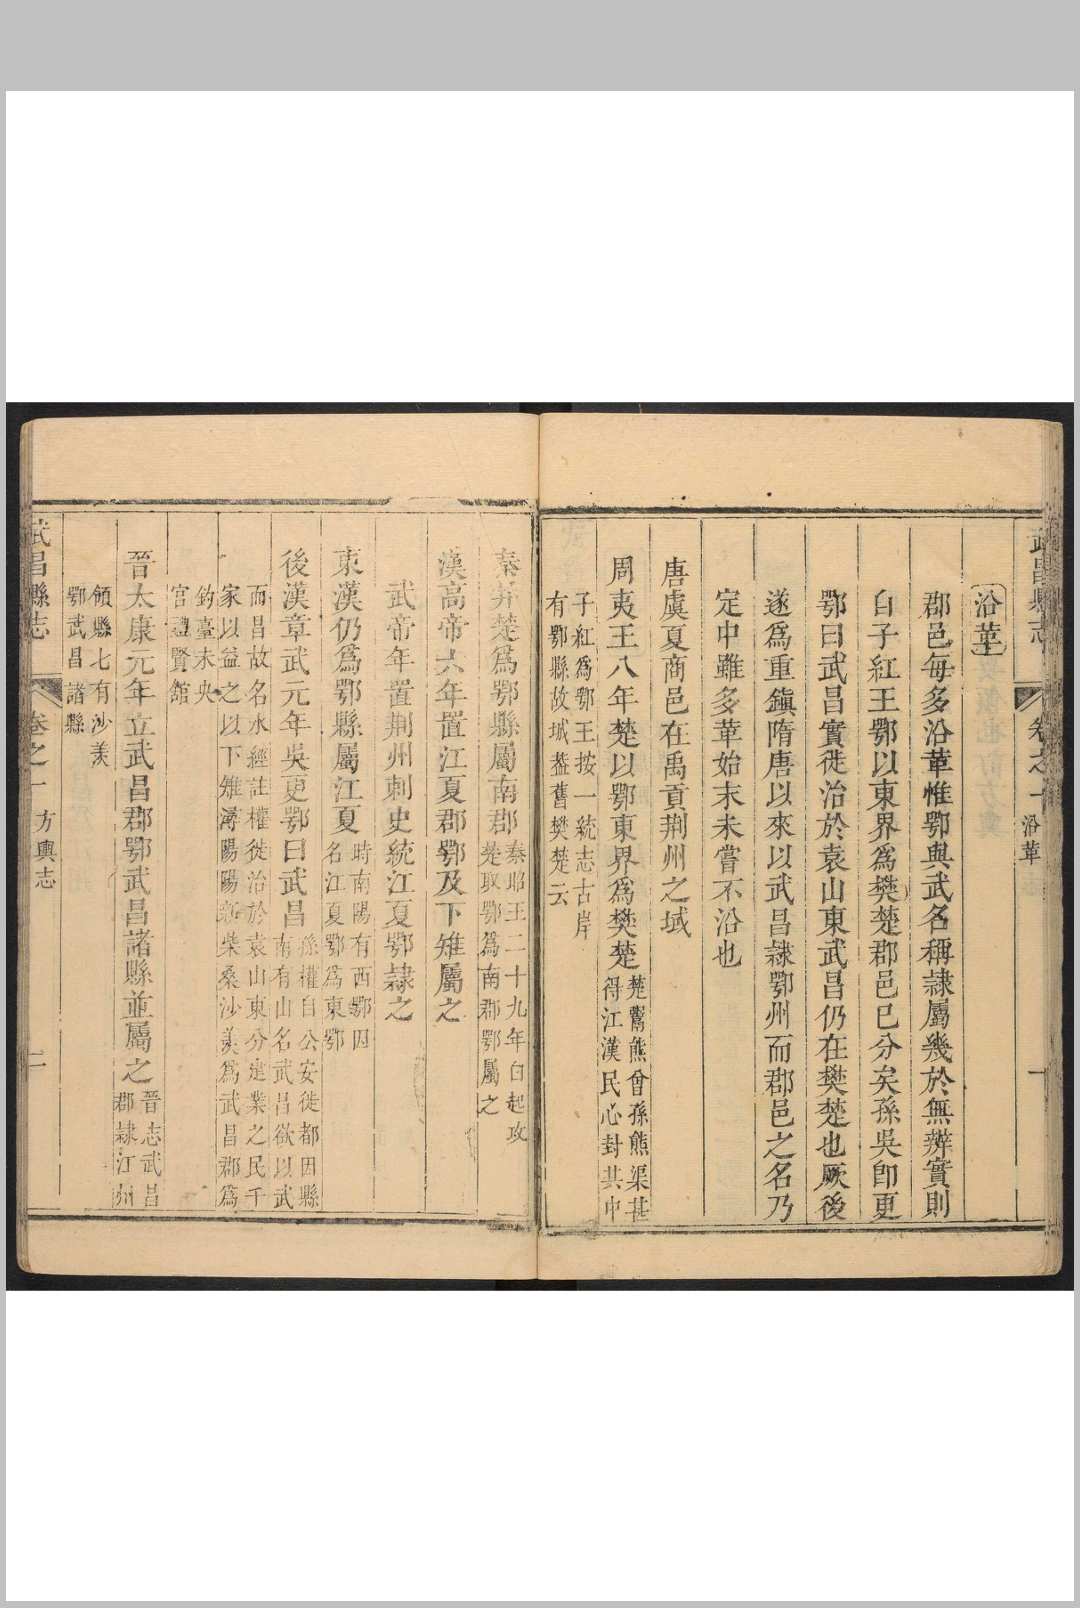 武昌縣志
卷之一
沿革
一
沿革
郡邑每多沿革惟鄂與武名稱隷屬幾於無辨實則
自子紅王鄂以東界爲樊楚郡邑已分矣孫吳即更
鄂曰武昌實徙治於袁山東武昌仍在樊楚也厥後
遂爲重鎮隋唐以來以武昌隷鄂州而郡邑之名乃
定中雖多革始末未嘗不沿也
唐虞夏商邑在禹貢荆州之域
周夷王八年楚以鄂東界爲樊楚楚鬻熊曾孫熊渠甚
得江漢民心封其中
子紅爲鄂王按一統志古岸
有鄂縣故城葢舊樊楚云
秦并楚爲鄂縣屬南郡秦昭王二十九年白起攻
楚取鄂爲南郡鄂屬之
漢高帝六年置江夏郡鄂及下雉屬之
武帝年置荆州刺史統江夏鄂隷之
東漢仍爲鄂縣屬江夏時南陽有西鄂因
名江夏鄂爲東鄂
後漢章武元年吳更鄂曰武昌孫權自公安徙都因縣
南有山名武昌欲以武
而昌故名水經註權徙治於袁山東分建業之民千
家以益之以下雉潯陽陽新柴桑沙羡爲武昌郡爲
釣臺未央
宫禮賢館
晉太康元年立武昌郡鄂武昌諸縣並屬之晉志武昌
郡隷江州
領縣七有沙羡
鄂武昌諸縣
武昌縣志
卷之一
方輿志
二